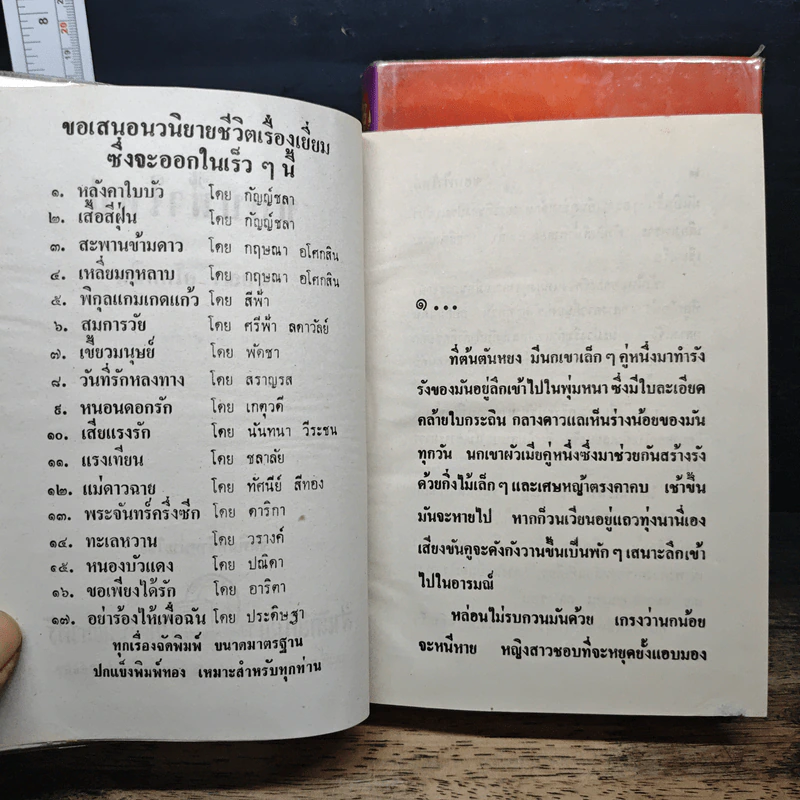 ขอเสนอนวนิยายชีวิตเรื่องเยี่ยม
ซึ่งจะออกในเร็ว ๆ นี้
๑. หลังคาใบบัว โดย กัญญ์ชลา
๒. เสื้อสีฝุ่น โดย กัญญ์ชลา
๓. สะพานข้ามดาว โดย กฤษณา อโศกสิน
๔. เหลี่ยมกุหลาบ โดย กฤษณา อโศกสิน
๕. พิกุลแกมเกดแก้ว โดย สีฟ้า
๖. สมการวัย โดย ศรีฟ้า ลดาวัลย์
๗. เขี้ยวมนุษย์ โดย พัดชา
๘. วันที่รักหลงทาง โดย สราญรส
๙. หนอนดอกรัก โดย เกตุวดี
๑๐. เสียแรงรัก โดย นันทนา วีระชน
๑๑. แรงเทียน โดย ชลาลัย
๑๒. แม่ดาวฉาย โดย ทัศนีย์ สีทอง
๑๓. พระจันทร์ครึ่งซีก โดย ดาริกา
๑๔. ทะเลหวาน โดย วรางค์
๑๕. หนองบัวแดง โดย ปณิดา
๑๖. ขอเพียงได้รัก โดย อาริตา
๑๗. อย่าร้องไห้เพื่อฉัน โดย ประดิษฐา
ทุกเรื่องจัดพิมพ์ ขนาดมาตรฐาน
ปกแข็งพิมพ์ทอง เหมาะสำหรับทุกท่าน
๑...
ที่ต้นตันหยง มีนกเขาเล็ก ๆ คู่หนึ่งมาทำรัง
รังของมันอยู่ลึกเข้าไปในพุ่มหนา ซึ่งมีใบละเอียด
คล้ายใบกระถิน กลางดาวแลเห็นร่างน้อยของมัน
ทุกวัน นกเขาผัวเมียคู่หนึ่งซึ่งมาช่วยกันสร้างรัง
ด้วยกิ่งไม้เล็ก ๆ และเศษหญ้าตรงคาคบ เช้าขึ้น
มันจะหายไป หากก็วนเวียนอยู่แถวทุ่งนานี่เอง
เสียงขันคูจะดังกังวานขึ้นเป็นพัก ๆ เสนาะลึกเข้า
ไปในอารมณ์
หล่อนไม่รบกวนมันด้วย เกรงว่านกน้อย
จะหนีหาย หญิงสาวชอบที่จะหยุดยั้งแอบมอง
8
19
20